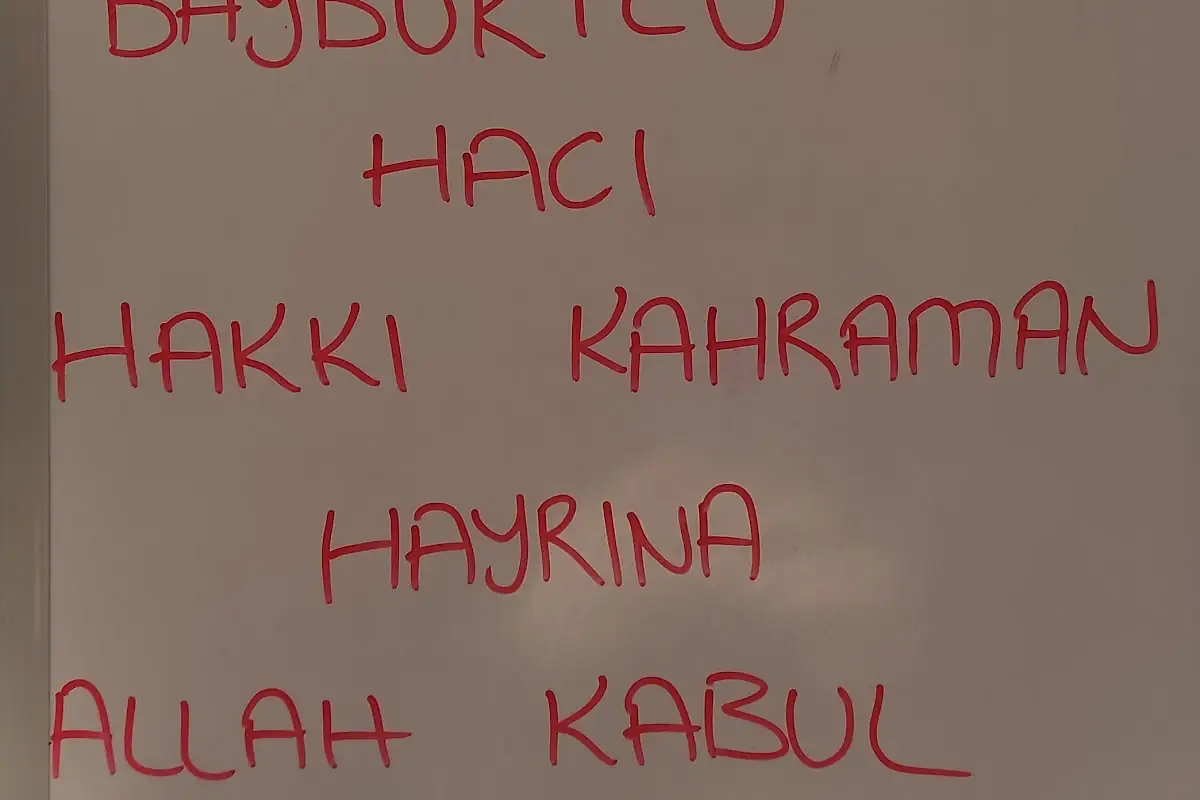 BAYBURTLU
HACI
HAKKI KAHRAMAN
HAYRINA
ALLAH KABUL